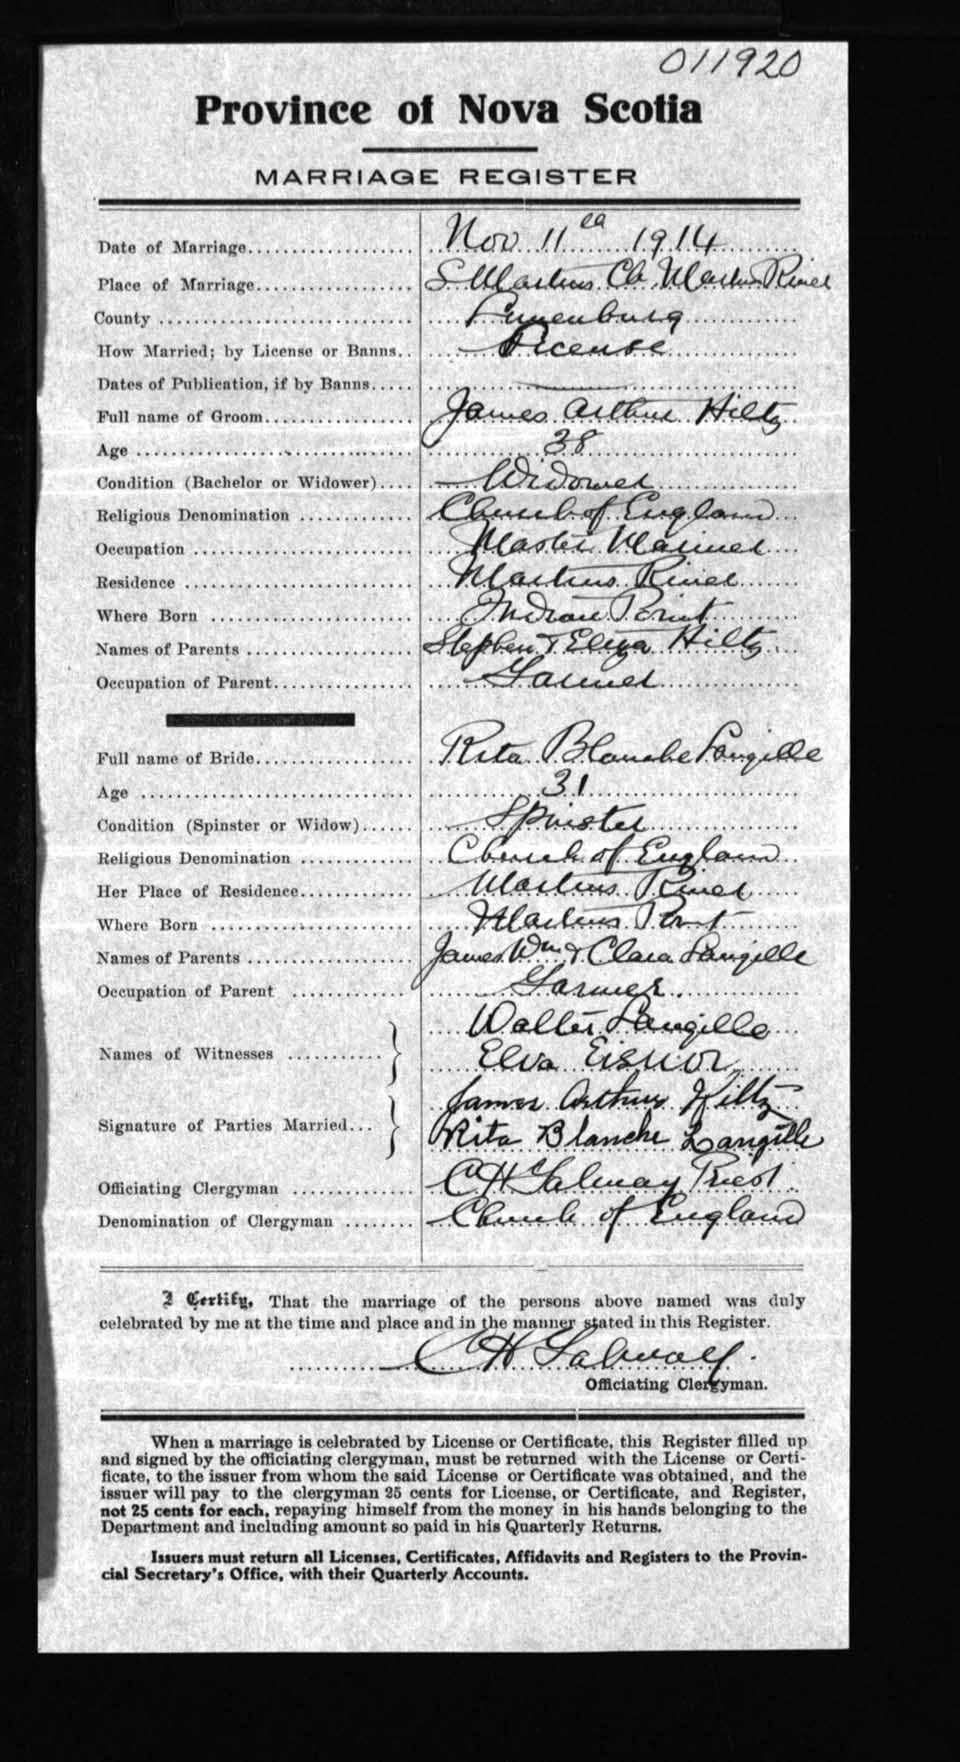 011920
Province of Nova Scotia
MARRIAGE REGISTER
Date of Marriage.................... Nov 11th 1914
Place of Marriage.................. S Martins Ch. Martins River
County ............................... Lunenburg
How Married; by License or Banns.. License
Dates of Publication, if by Banns.....
Full name of Groom.................. James Arthur Hiltz
Age .................................. 38
Condition (Bachelor or Widower).... Widower
Religious Denomination .............. Church of England
Occupation ........................... Master Mariner
Residence ............................ Martins River
Where Born ......................... Indian Point
Names of Parents .................... Stephen & Eliza Hiltz
Occupation of Parent................. Farmer
Full name of Bride................... Rita Blanche Langille
Age .................................. 31
Condition (Spinster or Widow)...... Spinster
Religious Denomination .............. Church of England
Her Place of Residence.............. Martins River
Where Born ......................... Martins Point
Names of Parents .................... James Wm & Clara Langille
Occupation of Parent ............... Farmer
Walter Langille
Names of Witnesses ........... Elva Eisnor
James Arthur Hiltz
Signature of Parties Married... Rita Blanche Langille
Officiating Clergyman ............... C H Talmay Priest
Denomination of Clergyman ........ Church of England
I Certify, That the marriage of the persons above named was duly
celebrated by me at the time and place and in the manner stated in this Register.
C H Talmay
Officiating Clergyman.
When a marriage is celebrated by License or Certificate, this Register filled up
and signed by the officiating clergyman, must be returned with the License or Certi-
ficate, to the issuer from whom the said License or Certificate was obtained, and the
issuer will pay to the clergyman 25 cents for License, or Certificate, and Register,
not 25 cents for each, repaying himself from the money in his hands belonging to the
Department and including amount so paid in his Quarterly Returns.
Issuers must return all Licenses, Certificates, Affidavits and Registers to the Provin-
cial Secretary's Office, with their Quarterly Accounts.